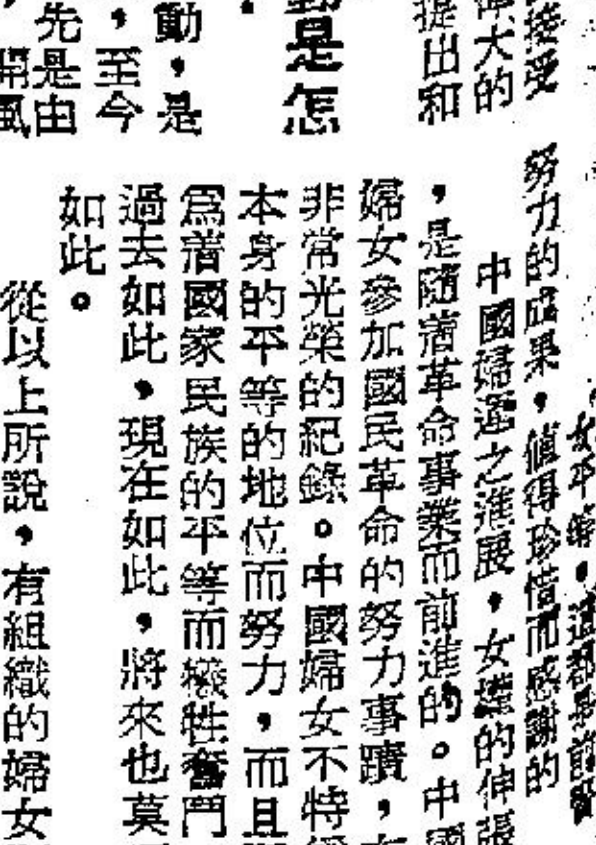 接受
大的
提出和
是怎
動，是
，至今
先是由
開風
女平等，這都是前輩
努力的成果，值得珍惜而感謝的
中國婦運之進展，女權的伸張
，是隨着革命事業而前進的。中國
婦女參加國民革命的努力事蹟，
非常光榮的紀錄。中國婦女不特
本身的平等的地位而努力，而且
爲着國家民族的平等而犧牲奮鬥
過去如此，現在如此，將來也莫
如此。
從以上所說，有組織的婦女